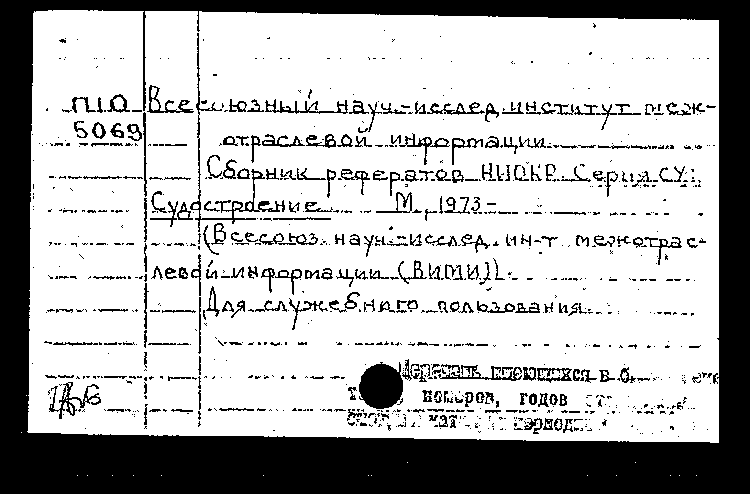 П10 Всесоюзный науч.-исслед. институт меж-
5069 отраслевой информации.
Сборник рефератов НИОКР. Серия СУ:
Судостроение М., 1973-
(Всесоюз. науч.-исслед. ин-т межотрас-
левой информации (ВИМИ)).
Для служебного пользования.
Перечень имеющихся в б.
номеров, годов